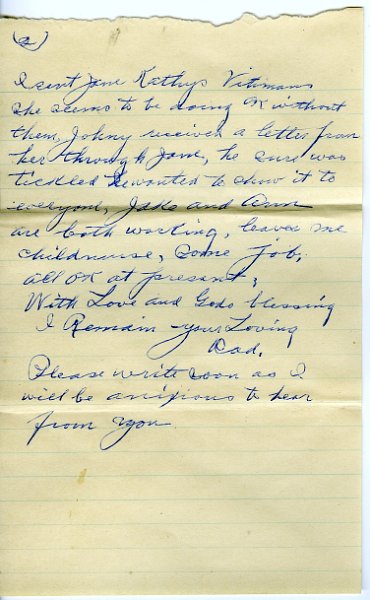 (2)
I sent Jane Kathys Vitimans
she seems to be doing OK without
them, Johny receiver a letter from
her through Jane, he sure was
tickled he wanted to show it to
everyone, Jake and Ann
are both working, leaves me
childnurse, some job,
all OK at present,
With Love and Gods blessing
I Remain your Loving
Dad.
Please write soon as I
will be anixious to hear
from you